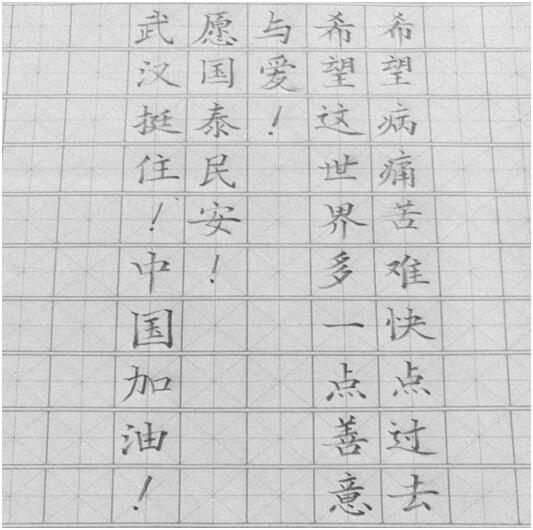 希望病痛苦难快点过去
希望这世界多一点善意
与爱！
愿国泰民安！
武汉挺住！中国加油！